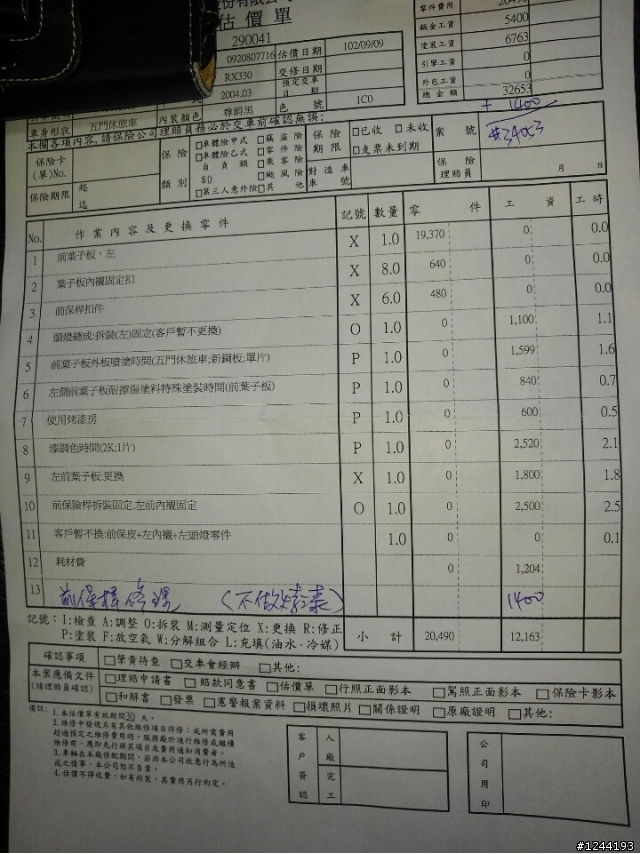 估價單
290041
0920807716 估價日期 102/09/09
RX330 交修日期
2004.03 預定交車日期
車身形狀 五門休旅車 內裝顏色 尊爵黑 色號 1C0
零件費用 20490
鈑金工資 5400
塗裝工資 6763
引擎工資 0
外包工資 0
總金額 32653
+ 1400
#34053
本欄各項內容,請保險公司理賠員務必於交車前確認無誤:
保險卡(單)No.
保險期限 起 迄
保險類別
□車體險甲式 □竊盜險
□車體險乙式 □零件險
自負額 □乘客險
$0 □颱風險
□第三人意外險 □其他
保險期限 □已收 □未收
□支票未到期
對造車車號
案號
保險理賠員 月 日
No. 作業內容及更換零件 記號 數量 零件 工資 工時
1 前葉子板,左 X 1.0 19,370 0 0.0
2 葉子板內襯固定扣 X 8.0 640 0 0.0
3 前保桿扣件 X 6.0 480 0 0.0
4 頭燈總成:拆裝(左)固定(客戶暫不更換) O 1.0 0 1,100 1.1
5 前葉子板外板噴塗時間(五門休旅車;新鋼板;單片) P 1.0 0 1,599 1.6
6 左側前葉子板耐擦傷塗料特殊塗裝時間(前葉子板) P 1.0 0 840 0.7
7 使用烤漆房 P 1.0 0 600 0.5
8 漆調色時間(2K:1片) P 1.0 0 2,520 2.1
9 左前葉子板:更換 X 1.0 0 1,800 1.8
10 前保險桿拆裝固定.左前內襯固定 O 1.0 0 2,500 2.5
11 客戶暫不換:前保皮+左內襯+左頭燈零件 1.0 0 0 0.1
12 耗材費 0 1,204
13 前保桿修理 (不做烤漆) 1400
記號:I:檢查 A:調整 O:拆裝 M:測量定位 X:更換 R:修正
P:塗裝 F:放空氣 W:分解組合 L:充填(油水.冷媒)
小計 20,490 12,163
確認事項 □肇責待查 □交車會經辦 □其他:
本案應備文件(請理賠員確認)
□理賠申請書 □賠款同意書 □估價單 □行照正面影本 □駕照正面影本 □保險卡影本
□和解書 □發票 □憲警報案資料 □損壞照片 □關係證明 □原廠證明 □其他:
備註:1.本估價單有效期間30天。
2.維修中發現另有其他維修項目待修;或所需費用
超過預定之維修費用時,服務廠於進行維修或繼續
維修前,應即先行將其項目及費用通知消費者。
3.車輛在本廠修配期間,若非本公司故意行為所造
成之情事,本公司恕不負責。
4.估價不得收費,如有拆裝,其費用另行約定。
客戶簽認 入廠 完工
公司用印
#1244193